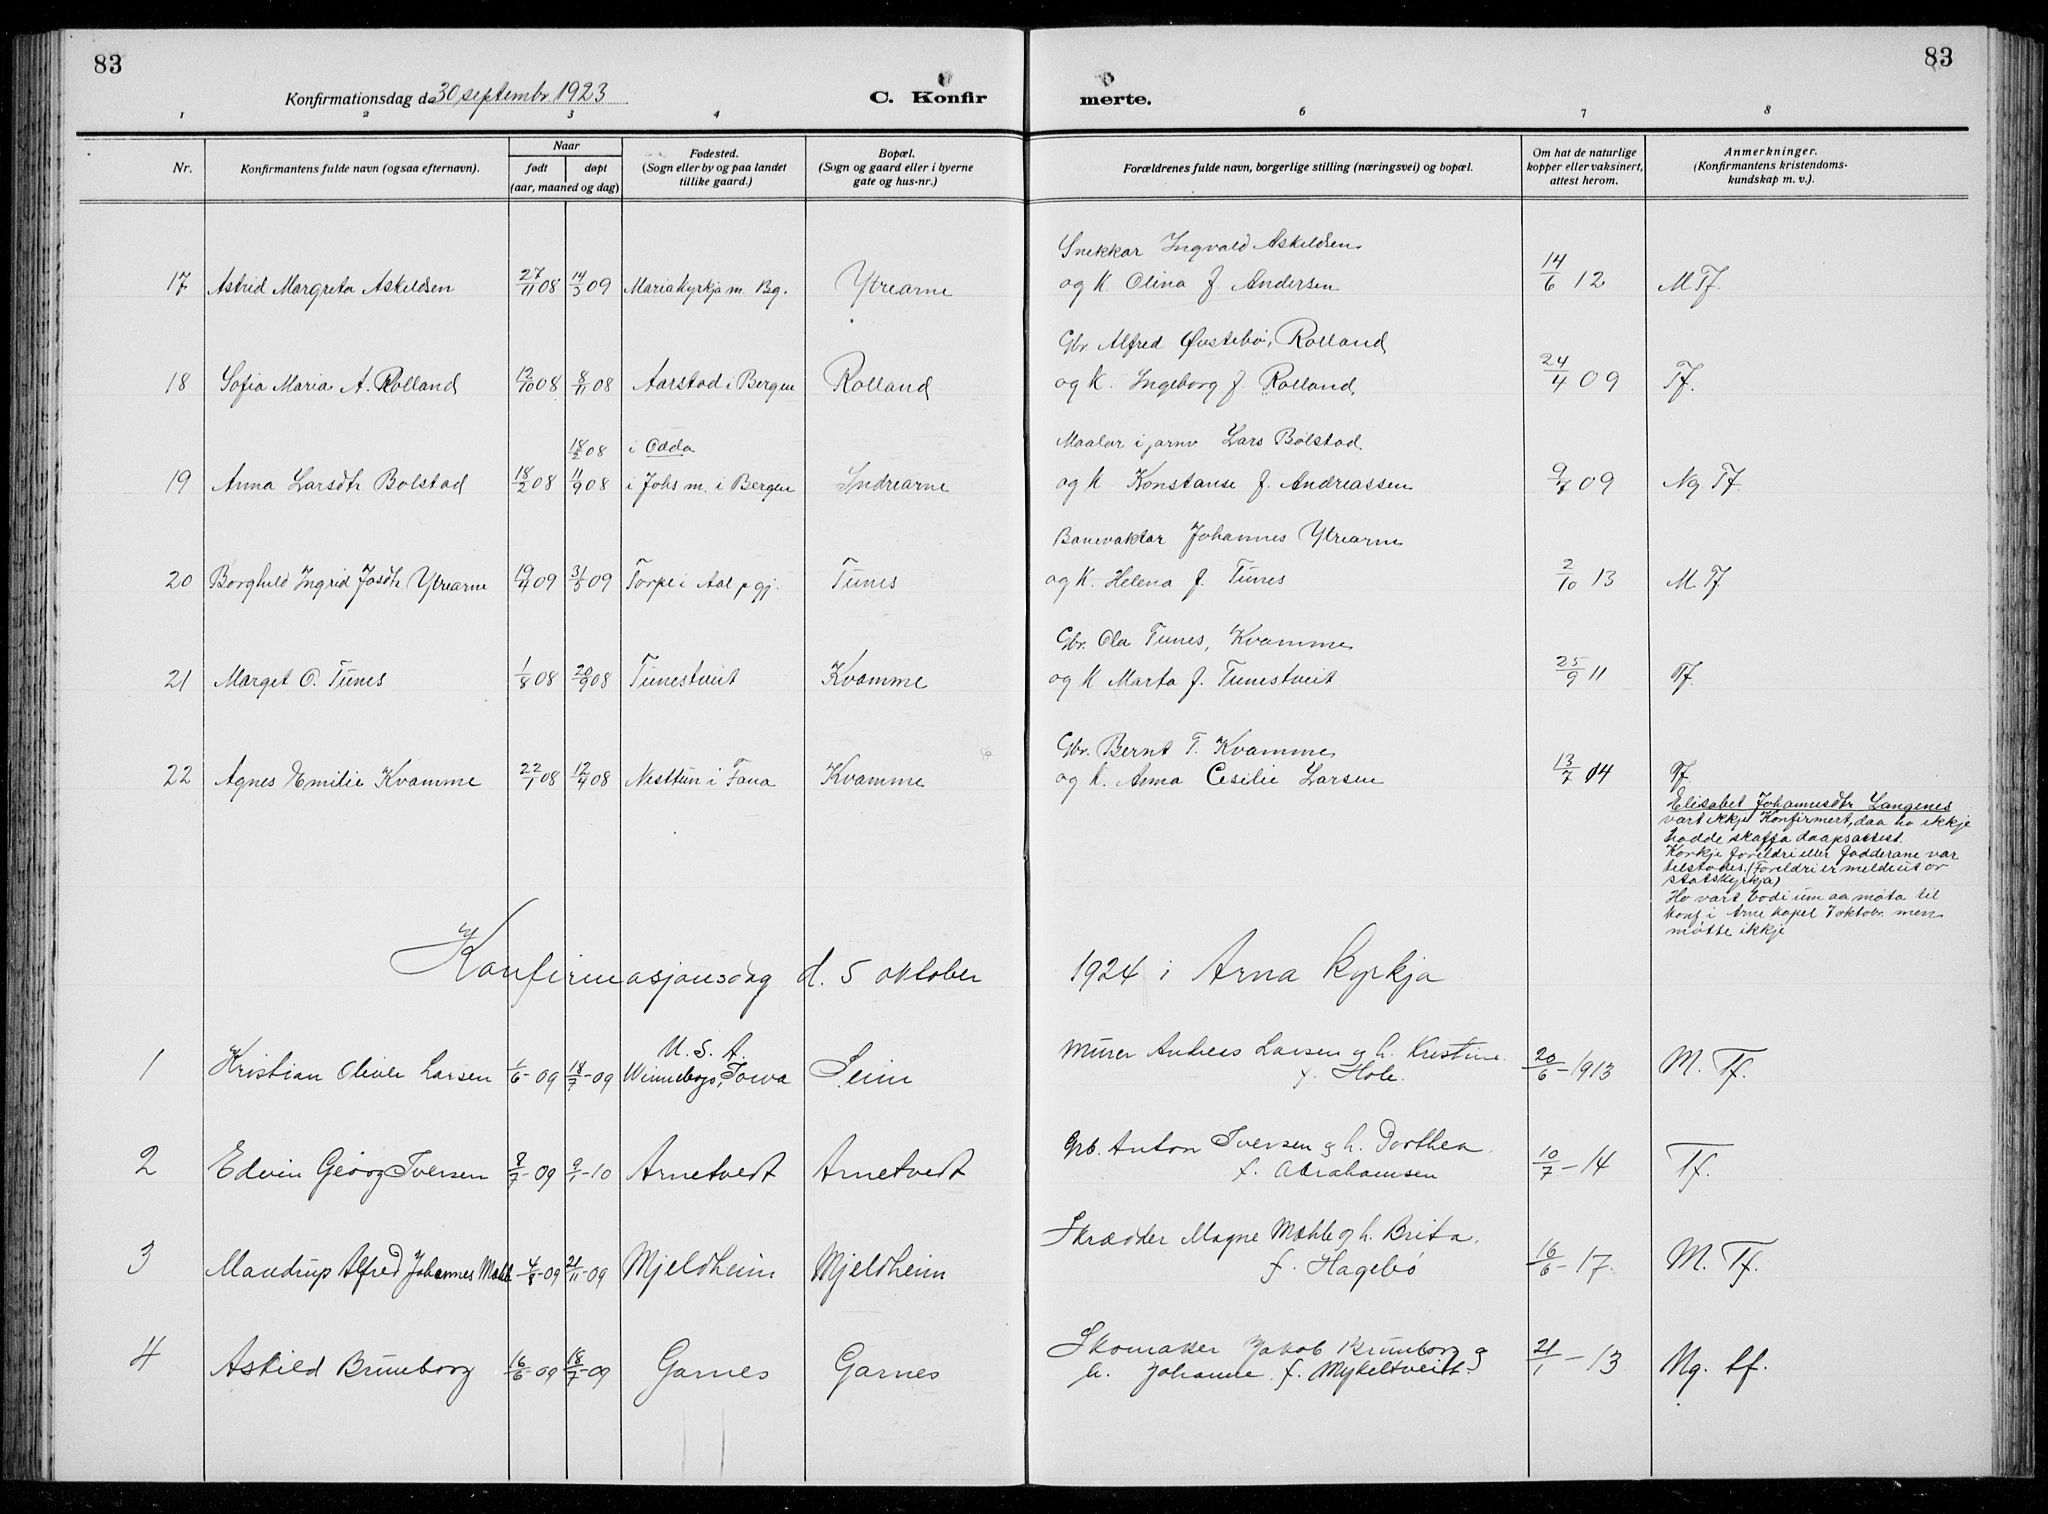 83
83
Konfirmationsdag de 30 septembr 1923
C. Konfir
merte.
1 2 3 4 6 7 8
Nr.
Konfirmantens fulde navn (ogsaa efternavn).
Naar
født
døpt
(aar, maaned og dag)
Fødested.
(Sogn eller by og paa landet
tillike gaard.)
Bopæl.
(Sogn og gaard eller i byerne
gate og hus-nr.)
Forældrenes fulde navn, borgerlige stilling (næringsvei) og bopæl.
Om hat de naturlige
kopper eller vaksinert,
attest herom.
Anmerkninger.
(Konfirmantens kristendoms-
kundskap m. v.).
Snekkar Ingvald Askildsen
17 Astrid Margreta Askildsen 27/11 08 14/3 09 Mariakyrkja m. Bg. Ytrearne og K. Olina f. Andersen 14/6 12 M Tf.
Gbr. Alfred Øvstebø, Rolland
18 Sofia Maria A. Rolland 12/10 08 8/11 08 Aarstad i Bergen Rolland og K. Ingeborg f. Rolland. 24/4 09 Tf.
18/2 08 i Odda Maalar i jarnv Lars Bolstad
19 Anna Larsdtr Bolstad 18/2 08 11/9 08 i Johs m. i Bergen Indrearne og K Konstanse f. Andreassen 9/7 09 Ng. Tf.
Banevaktar Johannes Ytrearne
20 Borghild Ingrid Josdtr Ytrearne 19/4 09 31/5 09 Torpe i Aal p gj. Tunes og K. Helena f. Tunes 2/10 13 M. Tf
Gbr. Ola Tunes, Kvamme
21 Marget O. Tunes 1/8 08 20/9 08 Tunestveit Kvamme og K Marta f. Tunestveit 25/9 11 Tf.
Gbr. Bernt T. Kvamme
22 Agnes Emilie Kvamme 22/1 08 12/4 08 Nesttun i Fana Kvamme og K. Anna Cesilie Larsen 13/7 14 Tf.
Elisabet Johannesdtr Langenes
vart ikkje Konfirmert, daa ho ikkje
hadde skaffa daapsattest.
Korkje foreldri eller fadderane var
tilstades. (Foreldri er meldeut or
statskyrkja)
Ho vart bodi um aa møta til
konf. i Arne kapel 7 oktobr. men
møtte ikkje
Konfirmasjonsdag d. 5 oktober 1924 i Arna kyrkja
U. S. A. Murer Andreas Larsen og h. Kristine
1 Kristian Oliver Larsen 1/6-09 18/7-09 Winnebago, Iowa Seim f. Hole. 20/6-1913 M. Tf.
Grb. Anton Iversen og h. Dorthea
2 Edvin Georg Iversen 8/7-09 9/1-10 Arnetvedt Arnetvedt f. Abrahamsen 10/7-14 Tf.
Skrædder Magne Mæhle og h. Brita
3 Mandrup Alfred Johannes Mæhle 4/8-09 21/11-09 Mjeldheim Mjeldheim f. Hagebø 16/6-17. M. Tf.
Skomaker Jakob Brunborg og
4 Askild Brunborg 16/6-09 18/7-09 Garnes Garnes h. Johanne f. Mykeltveidt. 21/1-13 Mg. tf.